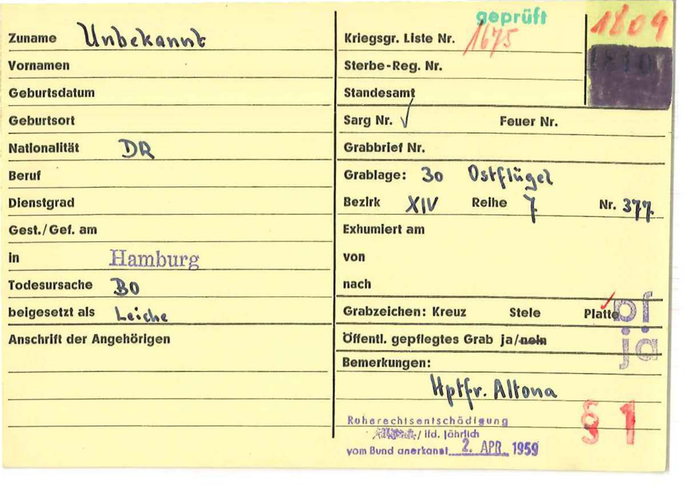 Zuname Unbekannt
Vornamen
Geburtsdatum
Geburtsort
Nationalität DR
Beruf
Dienstgrad
Gest./Gef. am
in Hamburg
Todesursache BO
beigesetzt als Leiche
Anschrift der Angehörigen
geprüft
1809
Kriegsgr. Liste Nr. 1675
1810
Sterbe-Reg. Nr.
Standesamt
Sarg Nr. √ Feuer Nr.
Grabbrief Nr.
Grablage: 30 Ostflügel
Bezirk XIV Reihe 7 Nr. 377.
Exhumiert am
von
nach
Grabzeichen: Kreuz Stele Platte
pf
Öffentl. gepflegtes Grab ja/nein
ja
Bemerkungen:
Hptfr. Altona
§ 1
Ruherechtsentschädigung
/ lfd. jährlich
vom Bund anerkannt 2. APR. 1959